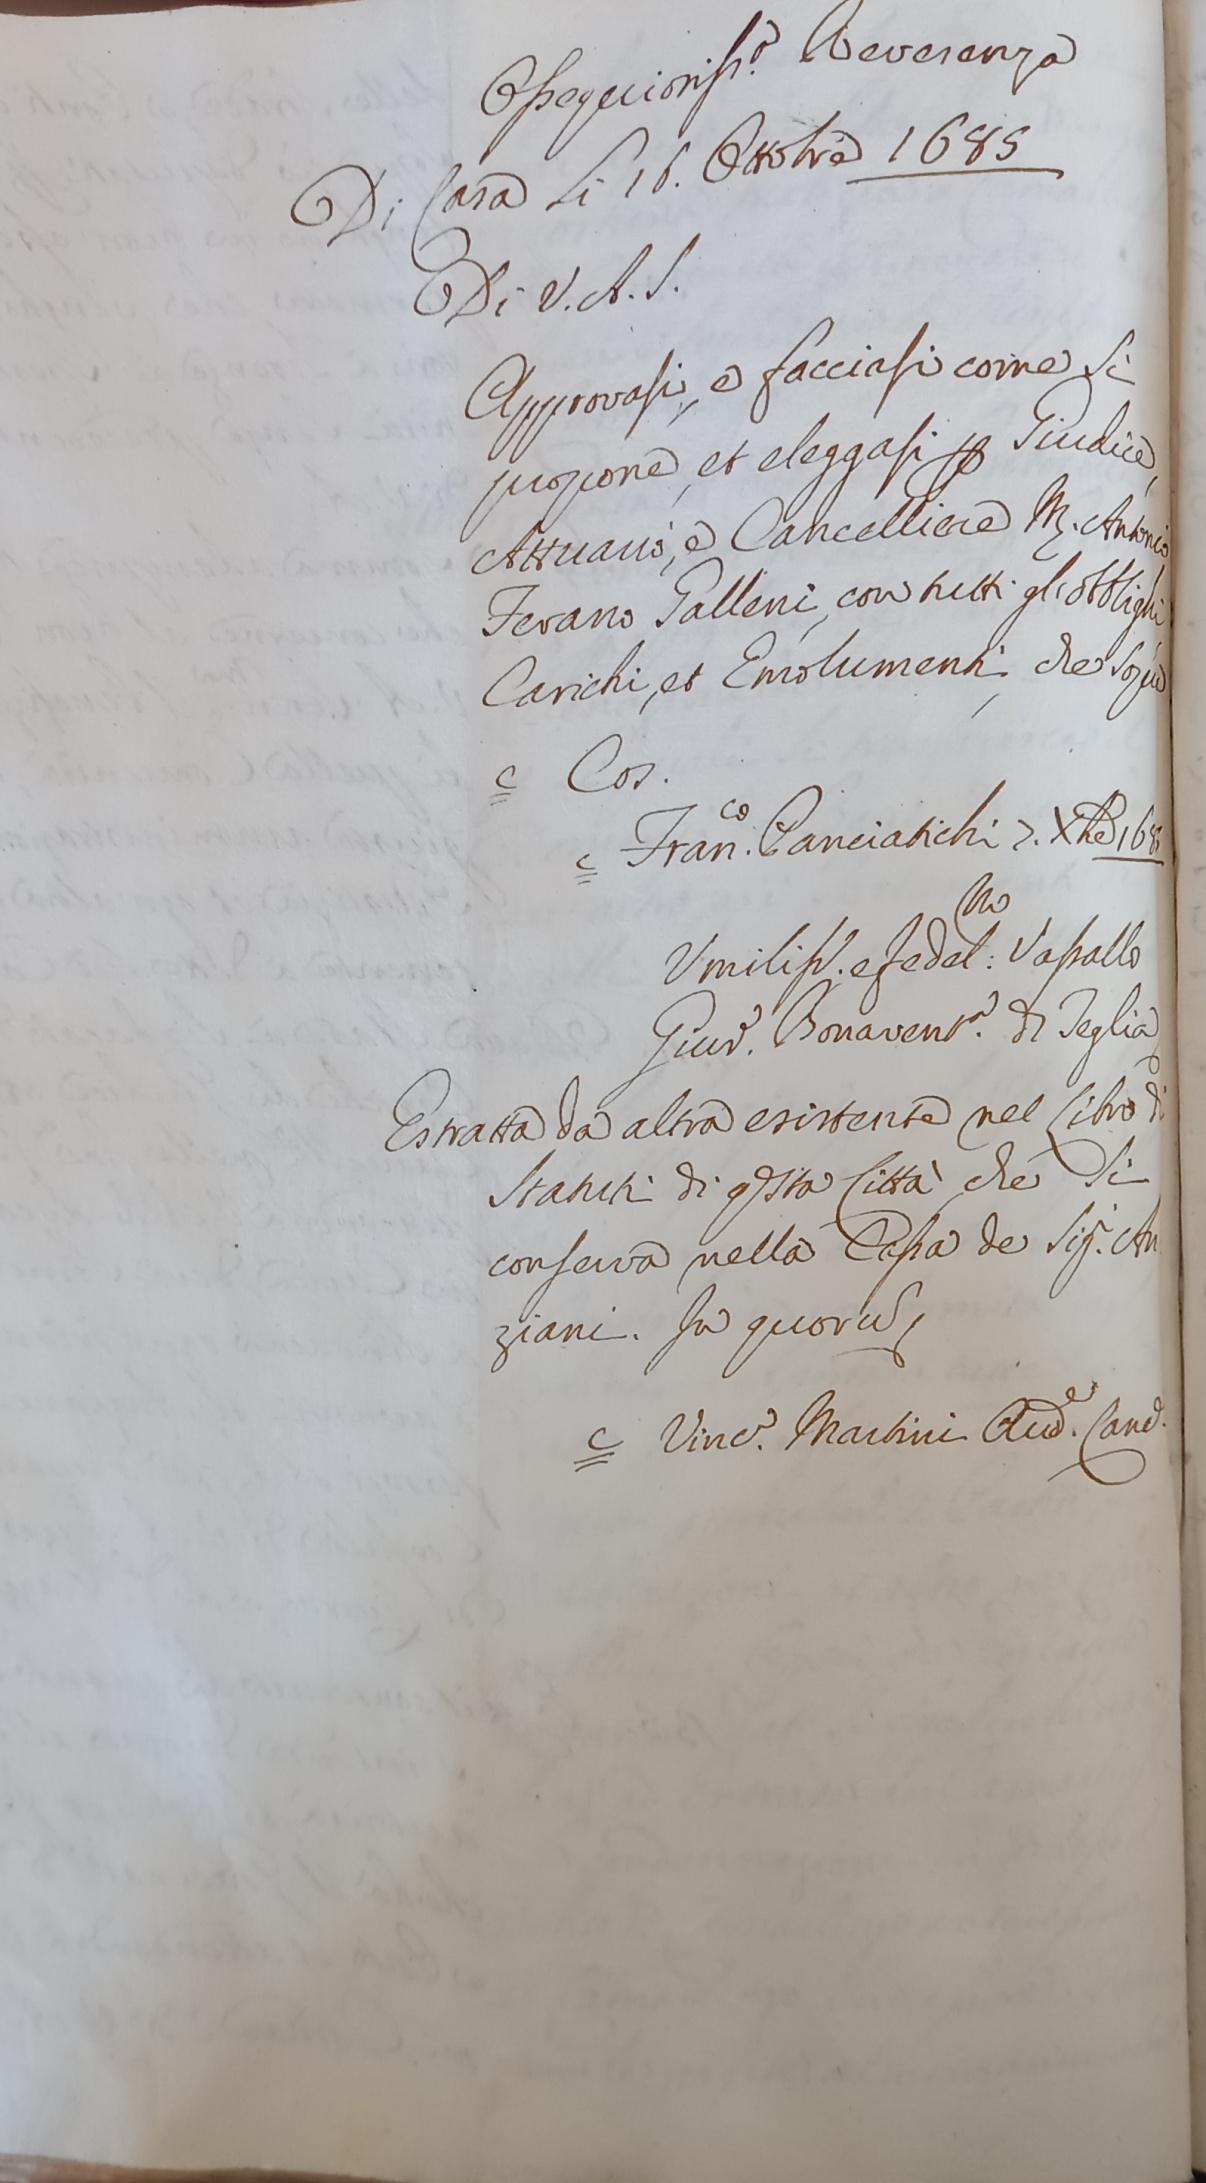 Ossequiosiss.ª Reverenza
Di Casa li 16. Ottobre 1685
Di V. A. S.
Approvasi, e facciasi come si
propone, et eleggasi p Giudice,
Attuario, e Cancelliere M. Antonio
Ferano Galleni, con tutti gl'obblighi
Carichi, et Emolumenti, che sopra
= Cos.
= Fran.co Panciatichi 7. Xbre 168
Umiliss. e fedel:mo Vassallo
Giur.e Bonavent.ra di Teglia
Estratta da altra esistente nel Libro di
Statuti di qsta Città che si
conserva nella Cassa de Sig.ri An
ziani. In quorum
= Vinc.o Martini Aud.e Canc.e